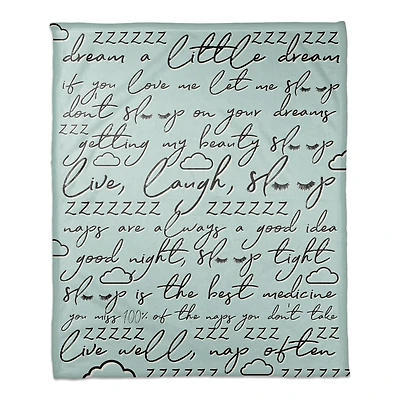 zzzzzz zzzzzz
dream a little dream
if you love me let me sleep
don't sleep on your dreams
zzz
getting my beauty sleep
live, laugh, sleep
zzzzzzz zzzzzzz
naps are always a good idea
good night, sleep tight
sleep is the best medicine
you miss 100% of the naps you don't take
zzzzz zzz zzz zzzz
live well, nap often